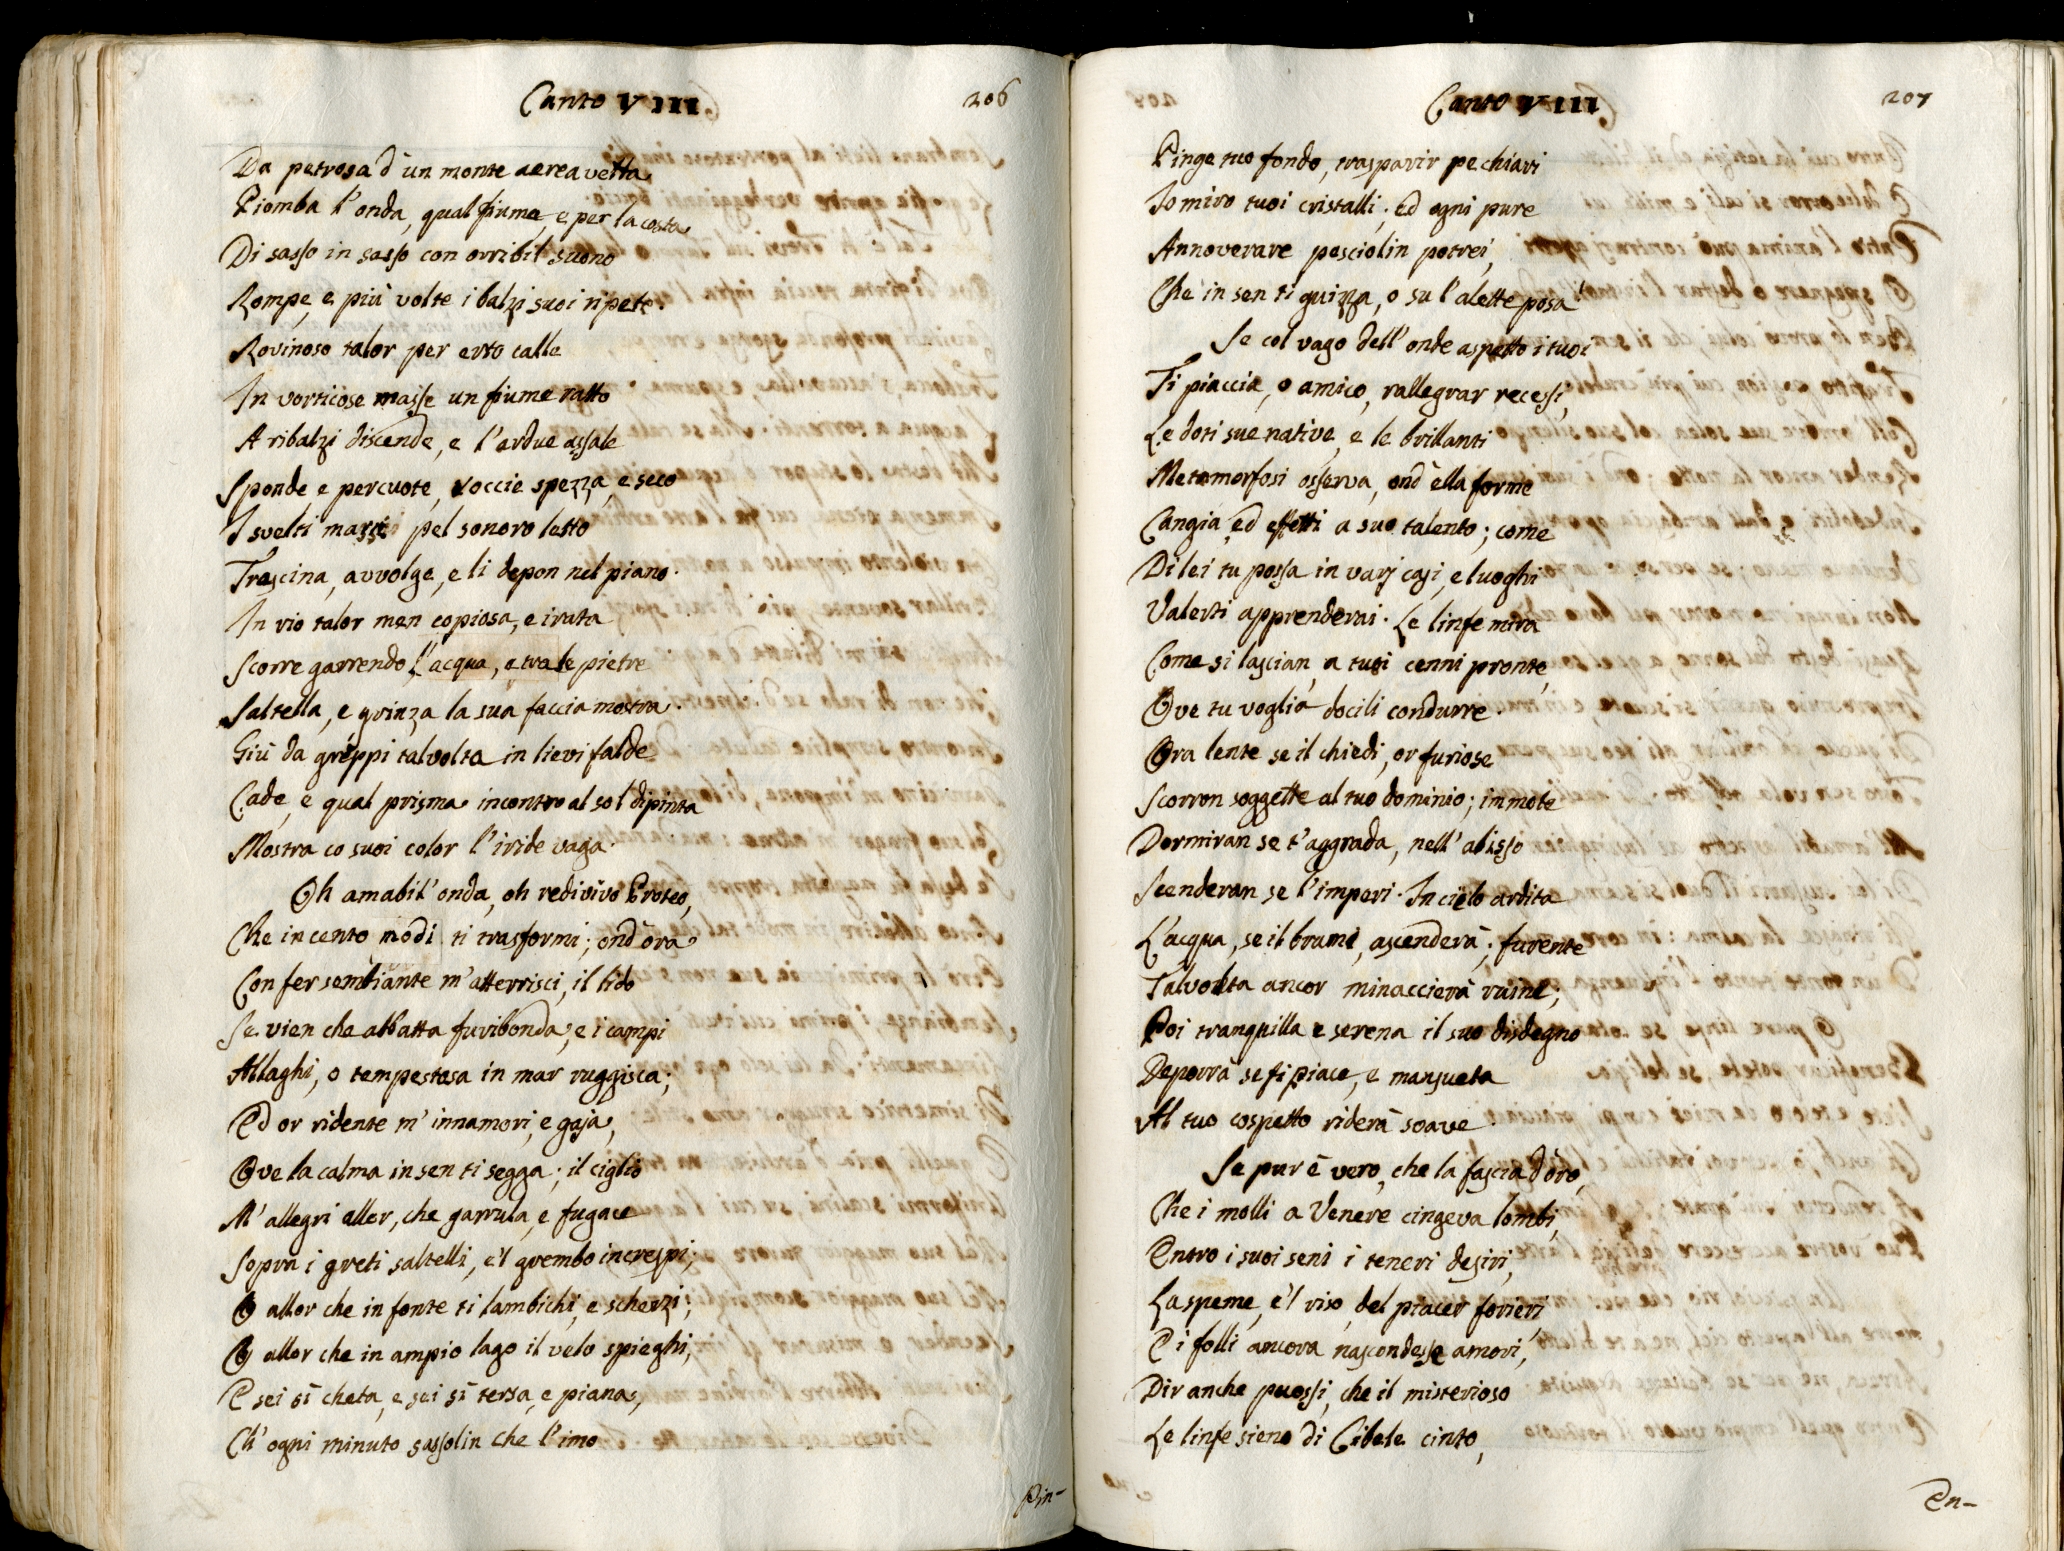 Canto VIII 206
Da petrosa d'un monte aerea vetta
Piomba l'onda, qual fiume, e per la costa
Di sasso in sasso con orribil suono
Rompe, e più volte i balzi suoi ripete.
Rovinoso talor per erto calle
In vorticose masse un fiume ratto
A ribalzi discende, e l'ardue assale
Sponde e percuote, roccie spezza, e seco
I svelti massi pel sonoro letto
Trascina, avvolge, e li depon nel piano.
In rio talor men copiosa, e irata
Scorre garrendo l'acqua, e tra le pietre
Saltella, e grinza la sua faccia mostra.
Giù da greppi talvolta in lievi falde
Cade, e qual prisma incontro al sol dipinta
Mostra co suoi color l'iride vaga.
Oh amabil'onda, oh redivivo Proteo,
Che in cento modi ti trasformi; ond'ora
Con fer sembiante m'atterrisci, il lido
Se vien che abbatta furibonda, e i campi
Allaghi, o tempestosa in mar ruggisca;
Ed or ridente m'innamori, e gaja,
Ove la calma in sen ti segga; il ciglio
M'allegri allor, che garrula, e fugace
Sopra i greti saltelli, e'l grembo increspi;
O allor che in fonte ti lambichi, e scherzi;
O allor che in ampio lago il velo spieghi,
E sei sì cheta, e sei sì tersa, e piana,
Ch'ogni minuto sassolin che l'imo
Pin-
Canto VIII 207
Pinge tuo fondo, trasparir pe chiari
Io miro tuoi cristalli; ed ogni pure
Annoverare pesciolin potrei,
Che in sen ti guizza, o su l'alette posa!
Se col vago dell'onde aspetto i tuoi
Ti piaccia, o amico, rallegrar recessi,
Le doti sue native, e le brillanti
Metamorfosi osserva, ond'ella forme
Cangia, ed effetti a suo talento; come
Di lei tu possa in varj casi, e luoghi
Valerti apprenderai. Le linfe mira
Come si lascian, a tuoi cenni pronte,
Ove tu voglia docili condurre.
Ora lente se il chiedi, or furiose
Scorron soggette al tuo dominio; immote
Dormiran se t'aggrada, nell'abisso
Scenderan se l'imperi. In cielo ardita
L'acqua, se il brami, ascenderà; furente
Talvolta ancor minaccierà ruine,
Poi tranquilla e serena il suo disdegno
Deporrà se ti piace, e mansueta
Al tuo cospetto riderà soave.
Se pur è vero, che la fascia d'oro,
Che i molli a Venere cingeva lombi,
Entro i suoi seni i teneri desiri,
La speme, e'l riso, del piacer forieri,
E i folli ancora nascondesse amori,
Dir anche puossi, che il misterioso
Le linfe sieno di Cibele cinto,
En-